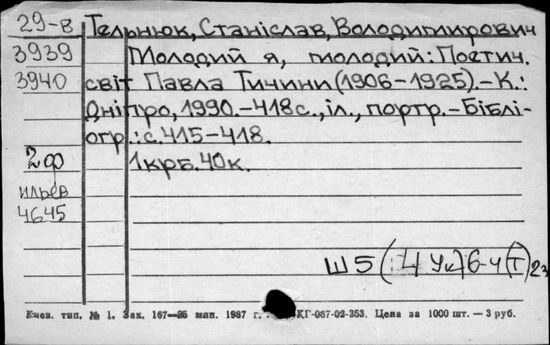 29-в Тельнюк, Станіслав, Володимирович
3939 Молодий я, молодий: Поетич.
3940 світ Павла Тичини (1906-1925).-К.:
Дніпро, 1990.-418с., іл., портр.-Бібліо-
огр.: с.415-418.
2ф 1крб.40к.
ильев
4645
Ш5(4Ук)6-4(Т)2з
Киев. тип. № 1. Зак. 167—25 млн. 1987 г. КГ-087-02-353. Цена за 1000 шт. — 3 руб.